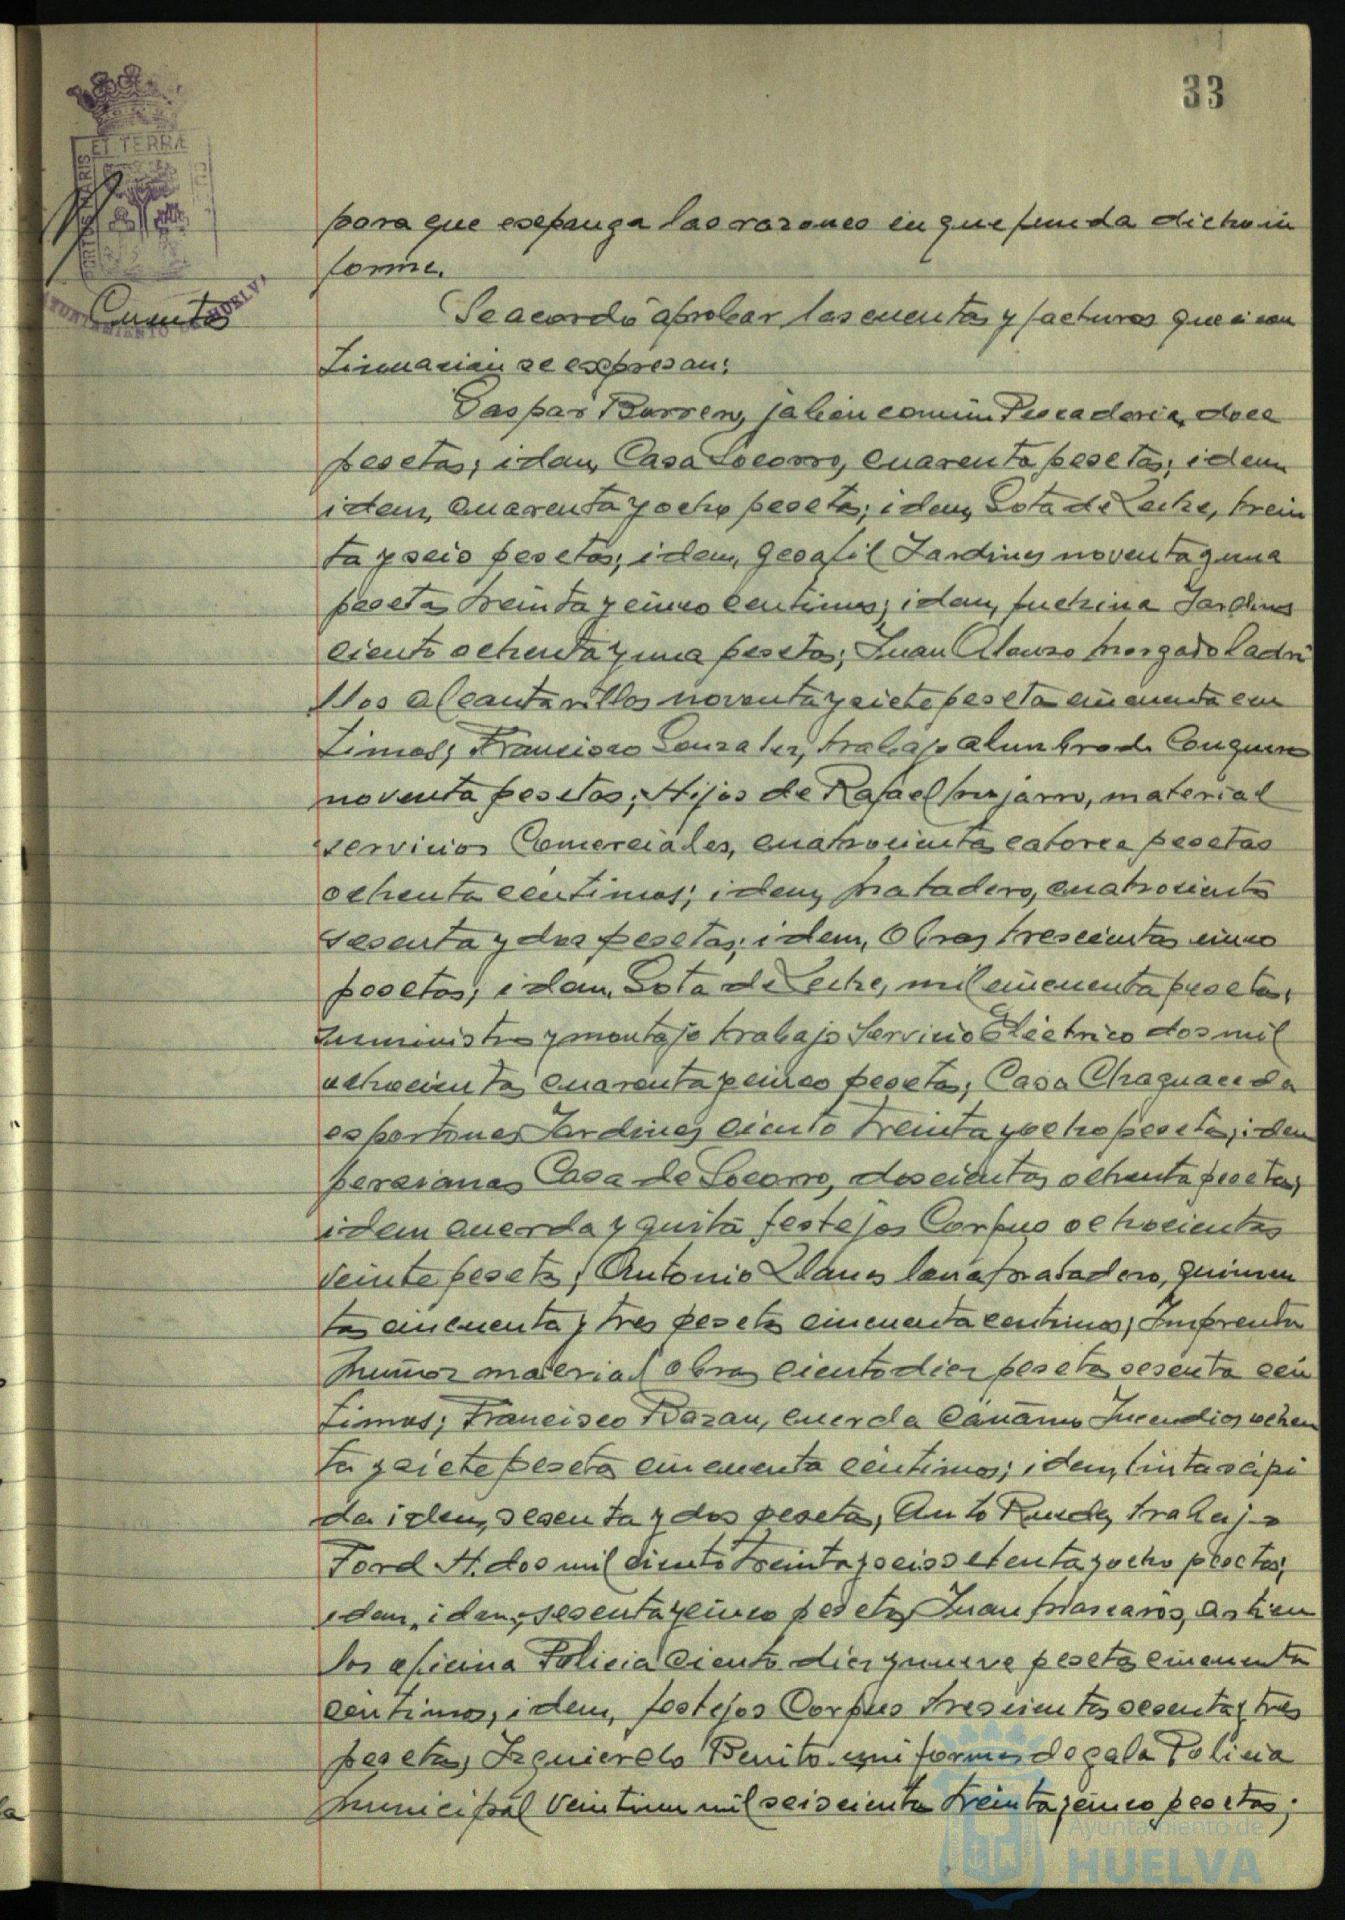 33
ET TERRÆ
PORTUS MARIS
AYUNTAMIENTO DE HUELVA
Cuentas
para que exponga las razones en que funda dicho in
forme.
Se acordó aprobar las cuentas y facturas que a con
tinuación se expresan:
Gaspar Barrero, jabón común Pescadería, doce
pesetas; idem, Casa Socorro, cuarenta pesetas; idem
idem, cuarenta y ocho pesetas; idem, Gota de Leche, trein
ta y seis pesetas; idem, gesafil Jardines noventa y una
pesetas treinta y cinco centimos; idem, fuchina Jardines
ciento ochenta y una pesetas; Juan Alonso Morgado ladri
llos alcantarillas noventa y siete pesetas cincuenta cen
timos; Francisco Gonzalez, trabajo alumbrado Conquero
noventa pesetas; Hijos de Rafael Mojarro, material
servicios Comerciales, cuatrocientas catorce pesetas
ochenta céntimos; idem, Matadero, cuatrocientas
sesenta y dos pesetas; idem, Obras trescientas cinco
pesetas; idem, Gota de Leche, mil cincuenta pesetas;
suministro y montaje trabajo Servicio Eléctrico dos mil
ochocientas cuarenta y cinco pesetas; Casa Chaguaceda
esportones Jardines ciento treinta y ocho pesetas; idem
persianas Casa de Socorro, doscientas ochenta pesetas;
idem cuerda y guita festejos Corpus ochocientas
veinte pesetas; Antonio Llanes lona Matadero, quinien
tas cincuenta y tres pesetas cincuenta centimos; Imprenta
Muñoz material obras ciento diez pesetas sesenta cén
timos; Francisco Bazan, cuerda cáñamo Incendios ochen
ta y siete pesetas cincuenta céntimos; idem, tinta
da idem, sesenta y dos pesetas; Anto Rueda, trabajo
Ford H. dos mil ciento treinta y seis setenta y ocho pesetas;
idem, idem, sesenta y cinco pesetas; Juan Mascarós, artícu
los oficina Policia ciento diez y nueve pesetas cincuenta
céntimos; idem, festejos Corpus trescientas sesenta y tres
pesetas; Izquierdo Benito uniformes de gala Policia
Municipal veintiun mil seiscientas treinta y cinco pesetas;
Ayuntamiento de
HUELVA